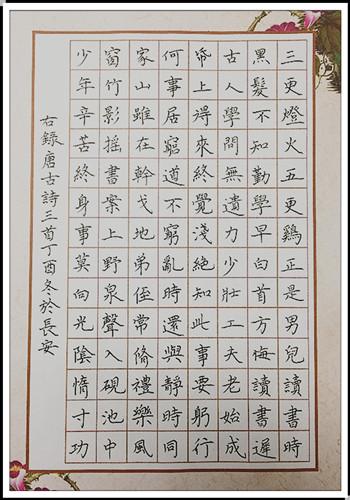 三更燈火五更鷄正是男兒讀書時
黑髮不知勤學早白首方悔讀書遲
古人學問無遺力少壯工夫老始成
帋上得來終覺淺絕知此事要躬行
何事居窮道不窮亂時還與靜時同
家山雖在幹戈地弟侄常脩禮樂風
窗竹影搖書案上野泉聲入硯池中
少年辛苦終身事莫向光陰惰寸功
右錄唐古詩三首丁酉冬於長安